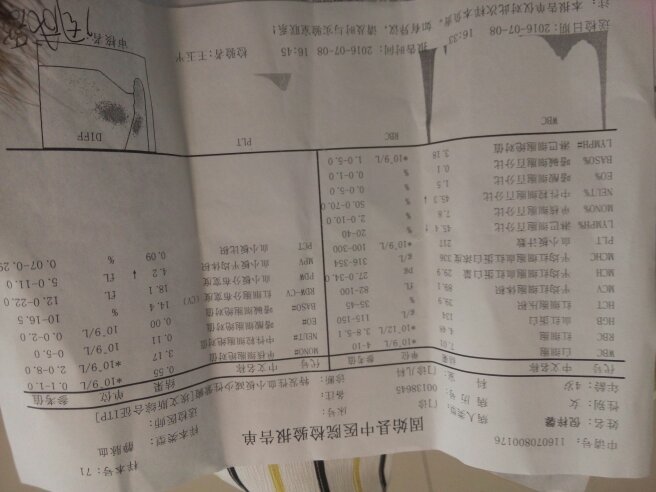 固始县中医院检验报告单
申请号：116070800176
样本号：71
姓名：倪梓馨
病人类型：门诊
床号：
样本类型：静脉血
性别：女
病历号：00138645
备注：
送检医师：
年龄：4岁
科室：门诊儿科
诊断：特发性血小板减少性紫癜[埃文斯综合征ITP]
代号 中文名称 结果 单位 参考值
WBC 白细胞 7.01 *10^9/L 4-10
RBC 红细胞 4.48 *10^12/L 3.8-5.1
HGB 血红蛋白 134 g/L 115-150
HCT 红细胞压积 39.9 % 35-45
MCV 平均红细胞体积 89.1 fL 82-100
MCH 平均红细胞血红蛋白量 29.9 pg 27.0-34.0
MCHC 平均红细胞血红蛋白浓度 336 g/L 316-354
PLT 血小板计数 217 *10^9/L 100-300
LYMPH% 淋巴细胞百分比 45.4 ↑ % 20-40
MONO% 单核细胞百分比 7.8 % 2.0-10.0
NEUT% 中性粒细胞百分比 45.3 ↓ % 50.0-70.0
EO% 嗜酸细胞百分比 1.5 % 0.0-5.0
BASO% 嗜碱细胞百分比 0.1 % 0.0-1.0
LYMPH# 淋巴细胞绝对值 3.18 *10^9/L 1.0-5.0
代号 中文名称 结果 单位 参考值
MONO# 单核细胞绝对值 0.55 *10^9/L 0.1-1.0
NEUT# 中性粒细胞绝对值 3.17 *10^9/L 2.0-8.0
EO# 嗜酸细胞绝对值 0.11 *10^9/L 0-5.0
BASO# 嗜碱细胞绝对值 0.00 10^9/L 0.0-2.0
RDW-CV 红细胞分布宽度(CV) 14.4 % 10-16.5
PDW 血小板分布宽度 18.1 fL 12.0-22.0
MPV 血小板平均体积 4.2 ↓ fL 5.0-11.0
PCT 血小板比积 0.09 % 0.07-0.29
WBC
RBC
PLT
DIFF
送检日期：2016-07-08 16:33
报告时间：2016-07-08 16:45
检验者：王玉平
审核者：
注：本报告单仅对此次样本负责，如有异议，请及时与实验室联系！